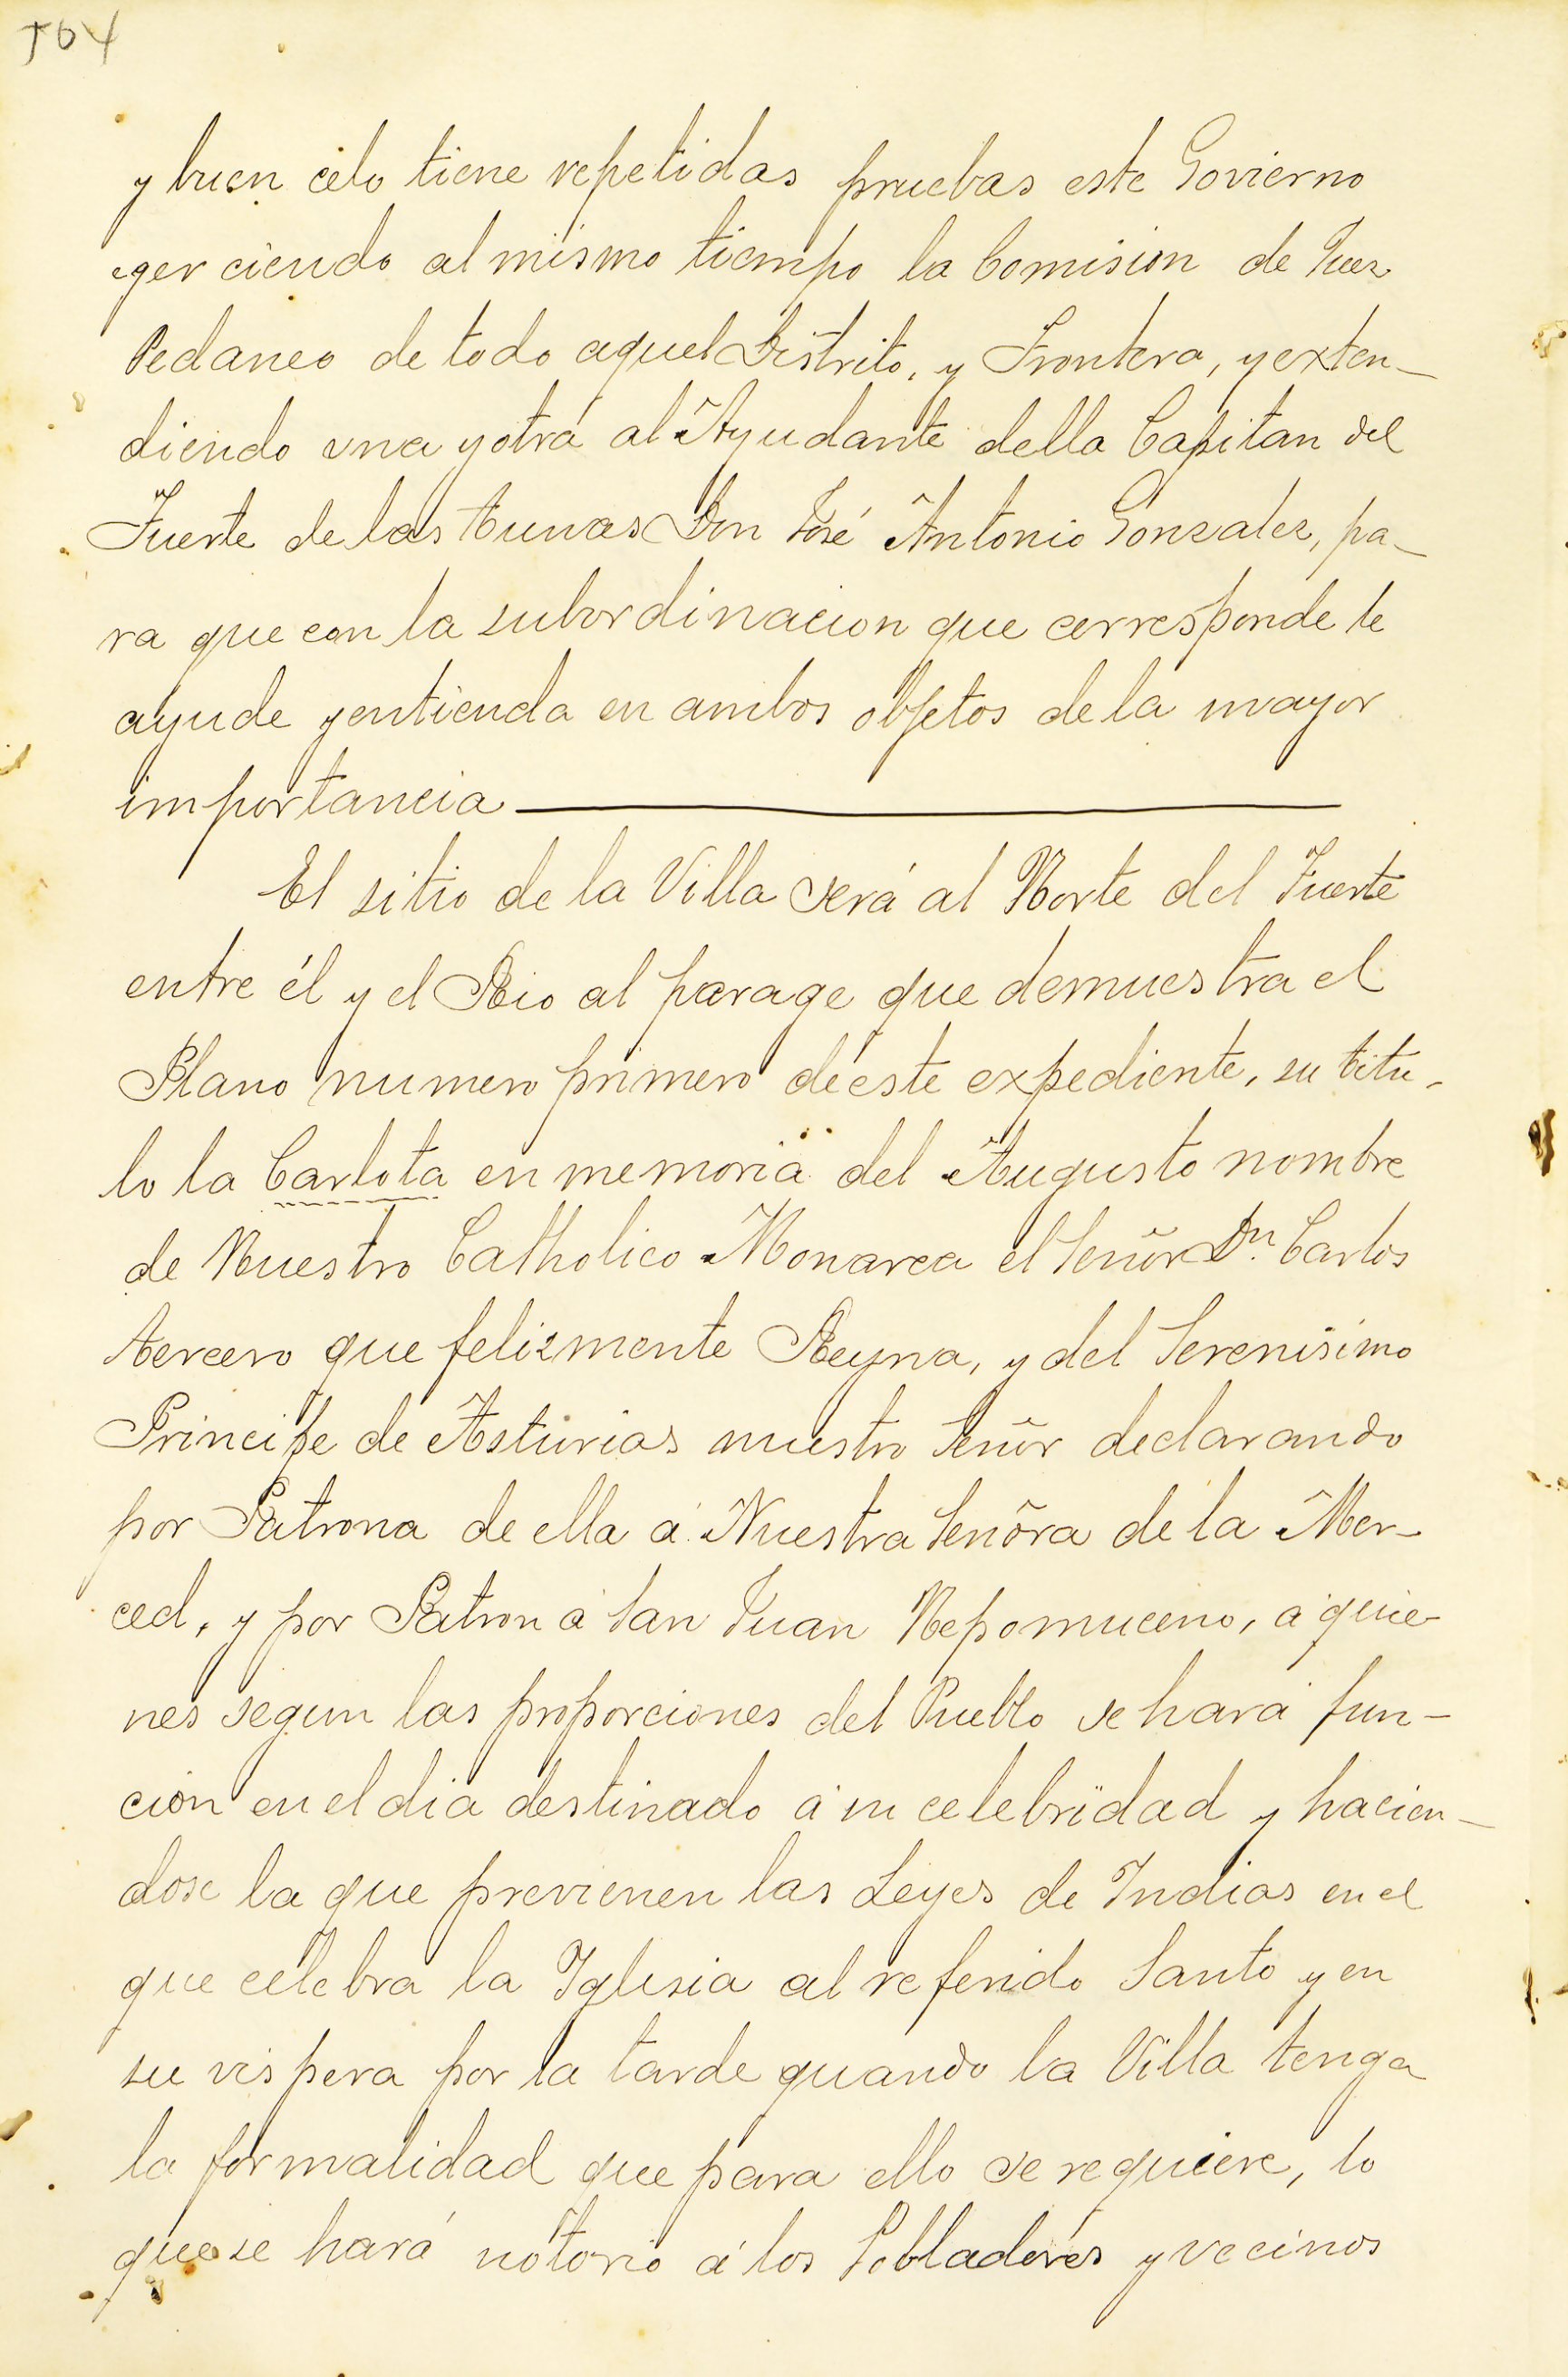 564
y buen celo tiene repetidas pruebas este Govierno
egerciendo al mismo tiempo la Comision de Juez
Pedaneo de todo aquel Distrito, y Frontera, y exten-
diendo una y otra al Ayudante della Capitan del
Fuerte de las Tunas Don José Antonio Gonzalez, pa-
ra que con la subordinacion que corresponde le
ayude y entienda en ambos objetos de la mayor
importancia
El sitio de la Villa será al Norte del Fuerte
entre él y el Rio al parage que demuestra el
Plano numero primero de este expediente, su titu-
lo la Carlota en memoria del Augusto nombre
de Nuestro Catholico Monarca el Señor Dn. Carlos
tercero que felizmente Reyna, y del Serenisimo
Principe de Asturias nuestro Señor declarando
por Patrona de ella á Nuestra Señora de la Mer-
ced, y por Patron á San Juan Nepomuceno, á quie-
nes segun las proporciones del Pueblo se hará fun-
cion en el dia destinado á su celebridad y hacien-
dose la que previenen las Leyes de Indias en el
que celebra la Iglesia al referido Santo y en
su vispera por la tarde quando la Villa tenga
la formalidad que para ello se requiere, lo
que se hará notorio á los Pobladores y vecinos